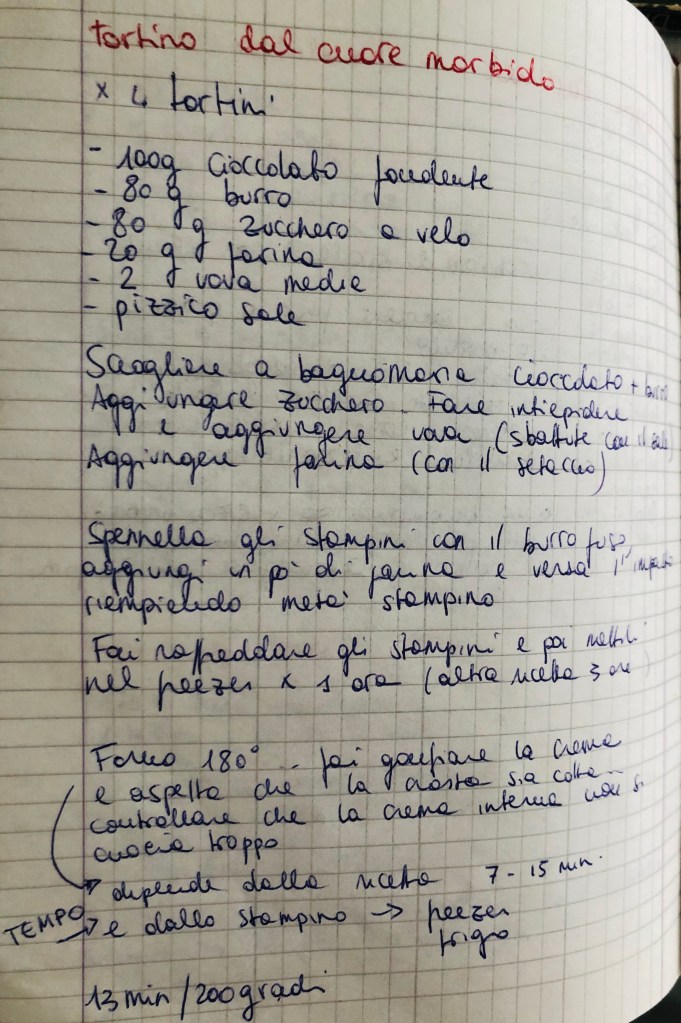 tortino dal cuore morbido
x 4 tortini
- 100g cioccolato fondente
- 80 g burro
- 80 g zucchero a velo
- 20 g farina
- 2 uova medie
- pizzico sale
Sciogliere a bagnomaria cioccolato + burro
Aggiungere zucchero. Fare intiepidire
e aggiungere uova (sbattute con il sale)
Aggiungere farina (con il setaccio)
Spennella gli stampini con il burro fuso,
aggiungi un pò di farina e versa l'impasto
riempiendo metà stampino
Fai raffreddare gli stampini e poi mettili
nel freezer x 1 ora (altra ricetta 3 ore)
Forno 180° - fai gonfiare la crema
e aspetta che la crosta sia cotta -
controllare che la crema interna non si
cuocia troppo
dipende dalla ricetta 7 - 15 min.
TEMPO → e dallo stampino → freezer
frigo
13 min / 200 gradi